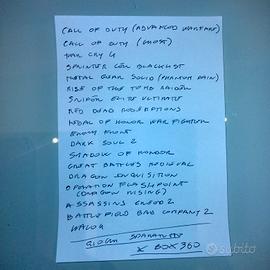 CALL OF DUTY (ADVANCED WARFARE)
CALL OF DUTY (GHOST)
FAR CRY 4
SPLINTER CELL BLACKLIST
METAL GEAR SOLID (PHANTOM PAIN)
RISE OF THE TOMB RAIDER
SNIPER ELITE ULTIMATE
RED DEAD REDEMPTIONS
MEDAL OF HONOR WAR FIGHTER
ENEMY FRONT
DARK SOUL 2
SHADOW OF MORDOR
GREAT BATTLES MEDIEVAL
DRAGON INQUISITION
OPERATION FLASHPOINT
(DRAGON RISING)
ASSASSINS CREED 2
BATTLEFIELD BAD COMPANY 2
GIOCHI SPARATUTTO
X BOX 360
subito